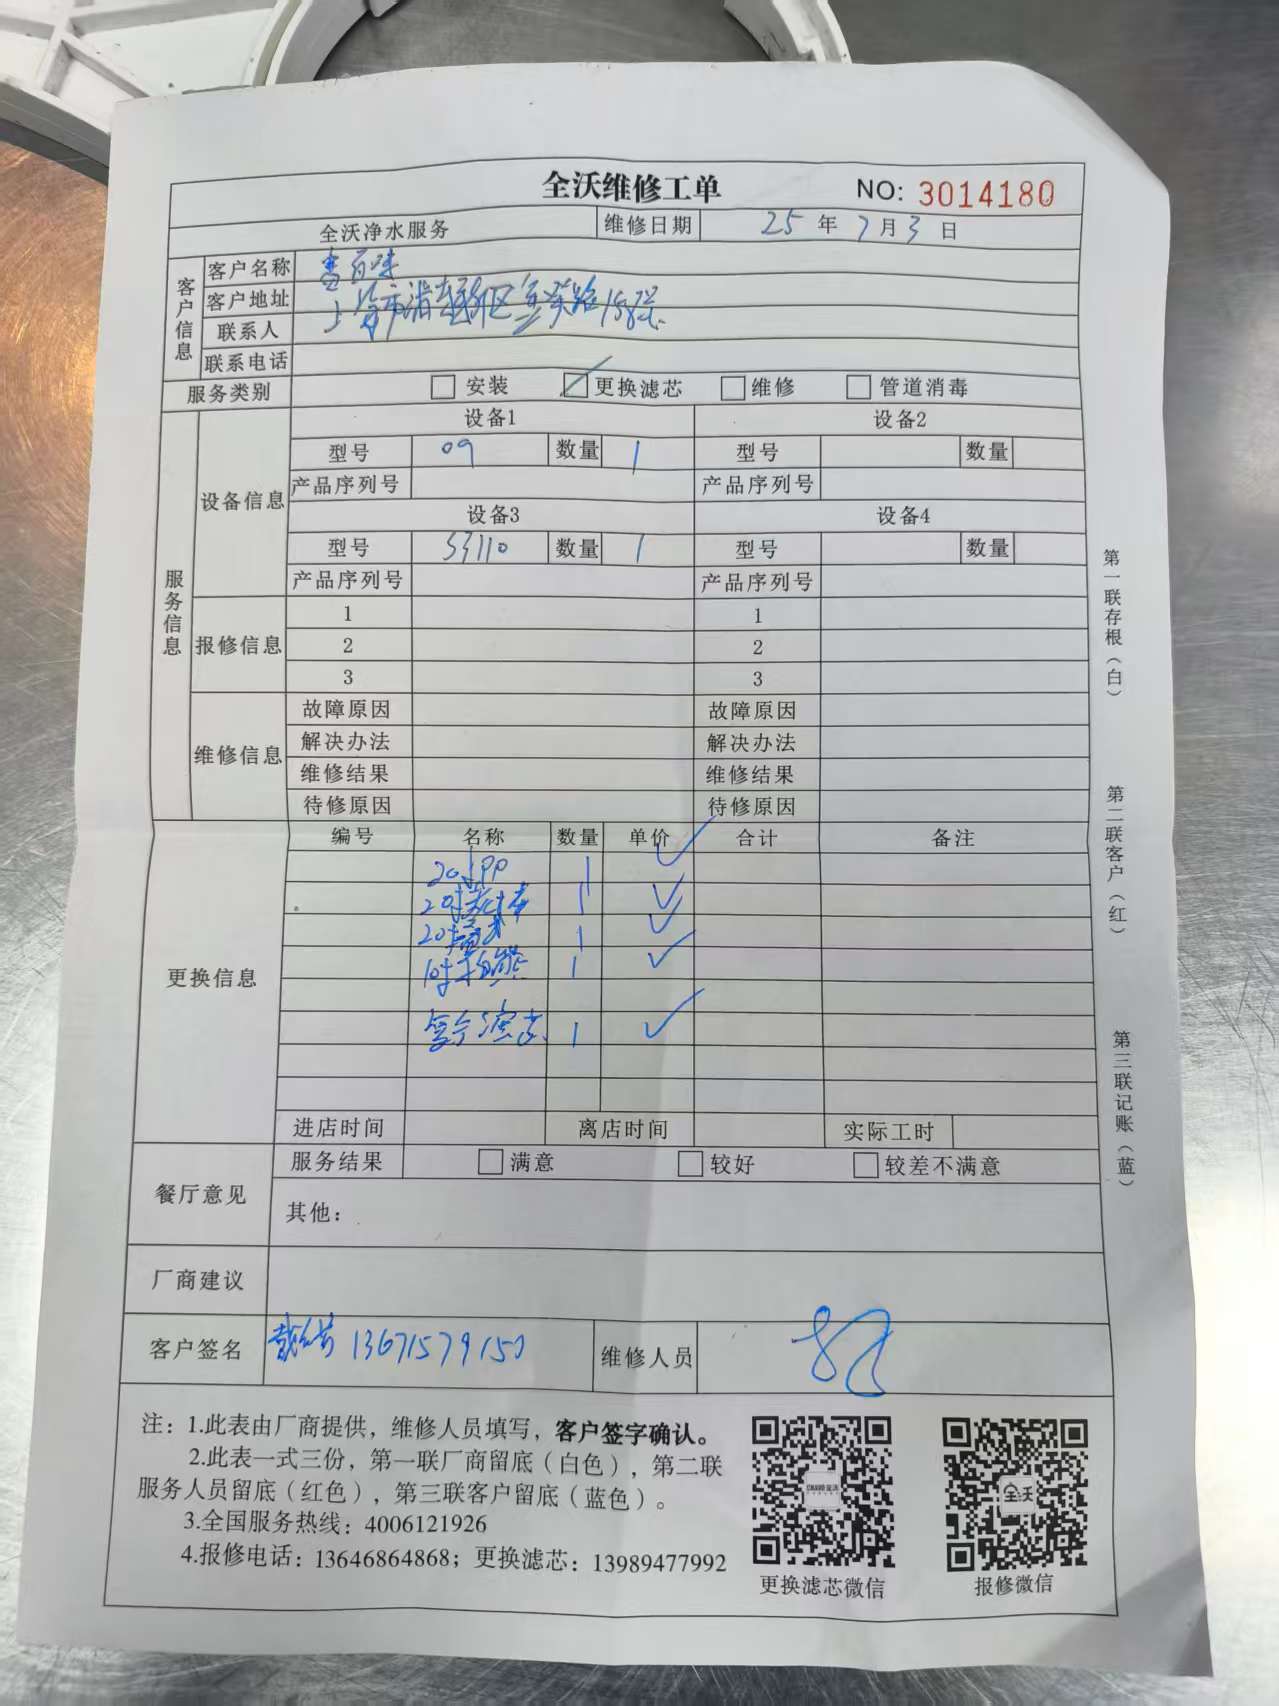 全沃维修工单 NO: 3014180
全沃净水服务 维修日期 25 年 7 月 3 日
客户信息
客户名称
客户地址 上海市浦东新区 路158号
联系人
联系电话
服务类别 安装 更换滤芯 维修 管道消毒
服务信息
设备信息
设备1 设备2
型号 09 数量 1 型号 数量
产品序列号 产品序列号
设备3 设备4
型号 S3110 数量 1 型号 数量
产品序列号 产品序列号
报修信息
1 1
2 2
3 3
维修信息
故障原因 故障原因
解决办法 解决办法
维修结果 维修结果
待修原因 待修原因
更换信息
编号 名称 数量 单价 合计 备注
20寸PP 1 ✓
20寸 1 ✓
20寸 1 ✓
10寸 1 ✓
复合滤芯 1 ✓
进店时间 离店时间 实际工时
餐厅意见
服务结果 满意 较好 较差不满意
其他：
厂商建议
客户签名 13671579157 维修人员
注：1.此表由厂商提供，维修人员填写，客户签字确认。
2.此表一式三份，第一联厂商留底（白色），第二联
服务人员留底（红色），第三联客户留底（蓝色）。
3.全国服务热线：4006121926
4.报修电话：13646864868；更换滤芯：13989477992
更换滤芯微信
全沃
报修微信
第一联存根（白）
第二联客户（红）
第三联记账（蓝）